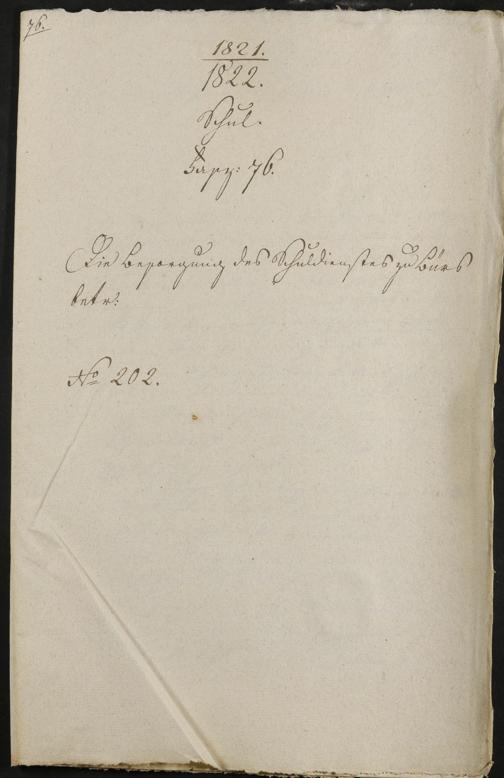 76.
1821.
1822.
Schul.
Fasz: 76.
Die Besorgung des Schuldienstes zu Bürs
betr:
No 202.